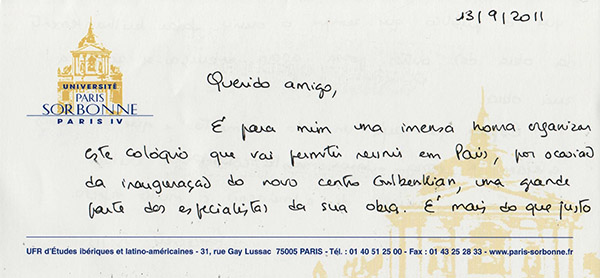 13/9/2011
UNIVERSITÉ
PARIS
SORBONNE
PARIS IV
Querido amigo,
É para mim uma imensa honra organizar
este colóquio que vai permitir reunir em Paris, por ocasião
da inauguração do novo centro Gulbenkian, uma grande
parte dos especialistas da sua obra. É mais do que justo
UFR d'Études ibériques et latino-américaines - 31, rue Gay Lussac 75005 PARIS - Tél. : 01 40 51 25 00 - Fax : 01 43 25 28 33 - www.paris-sorbonne.fr